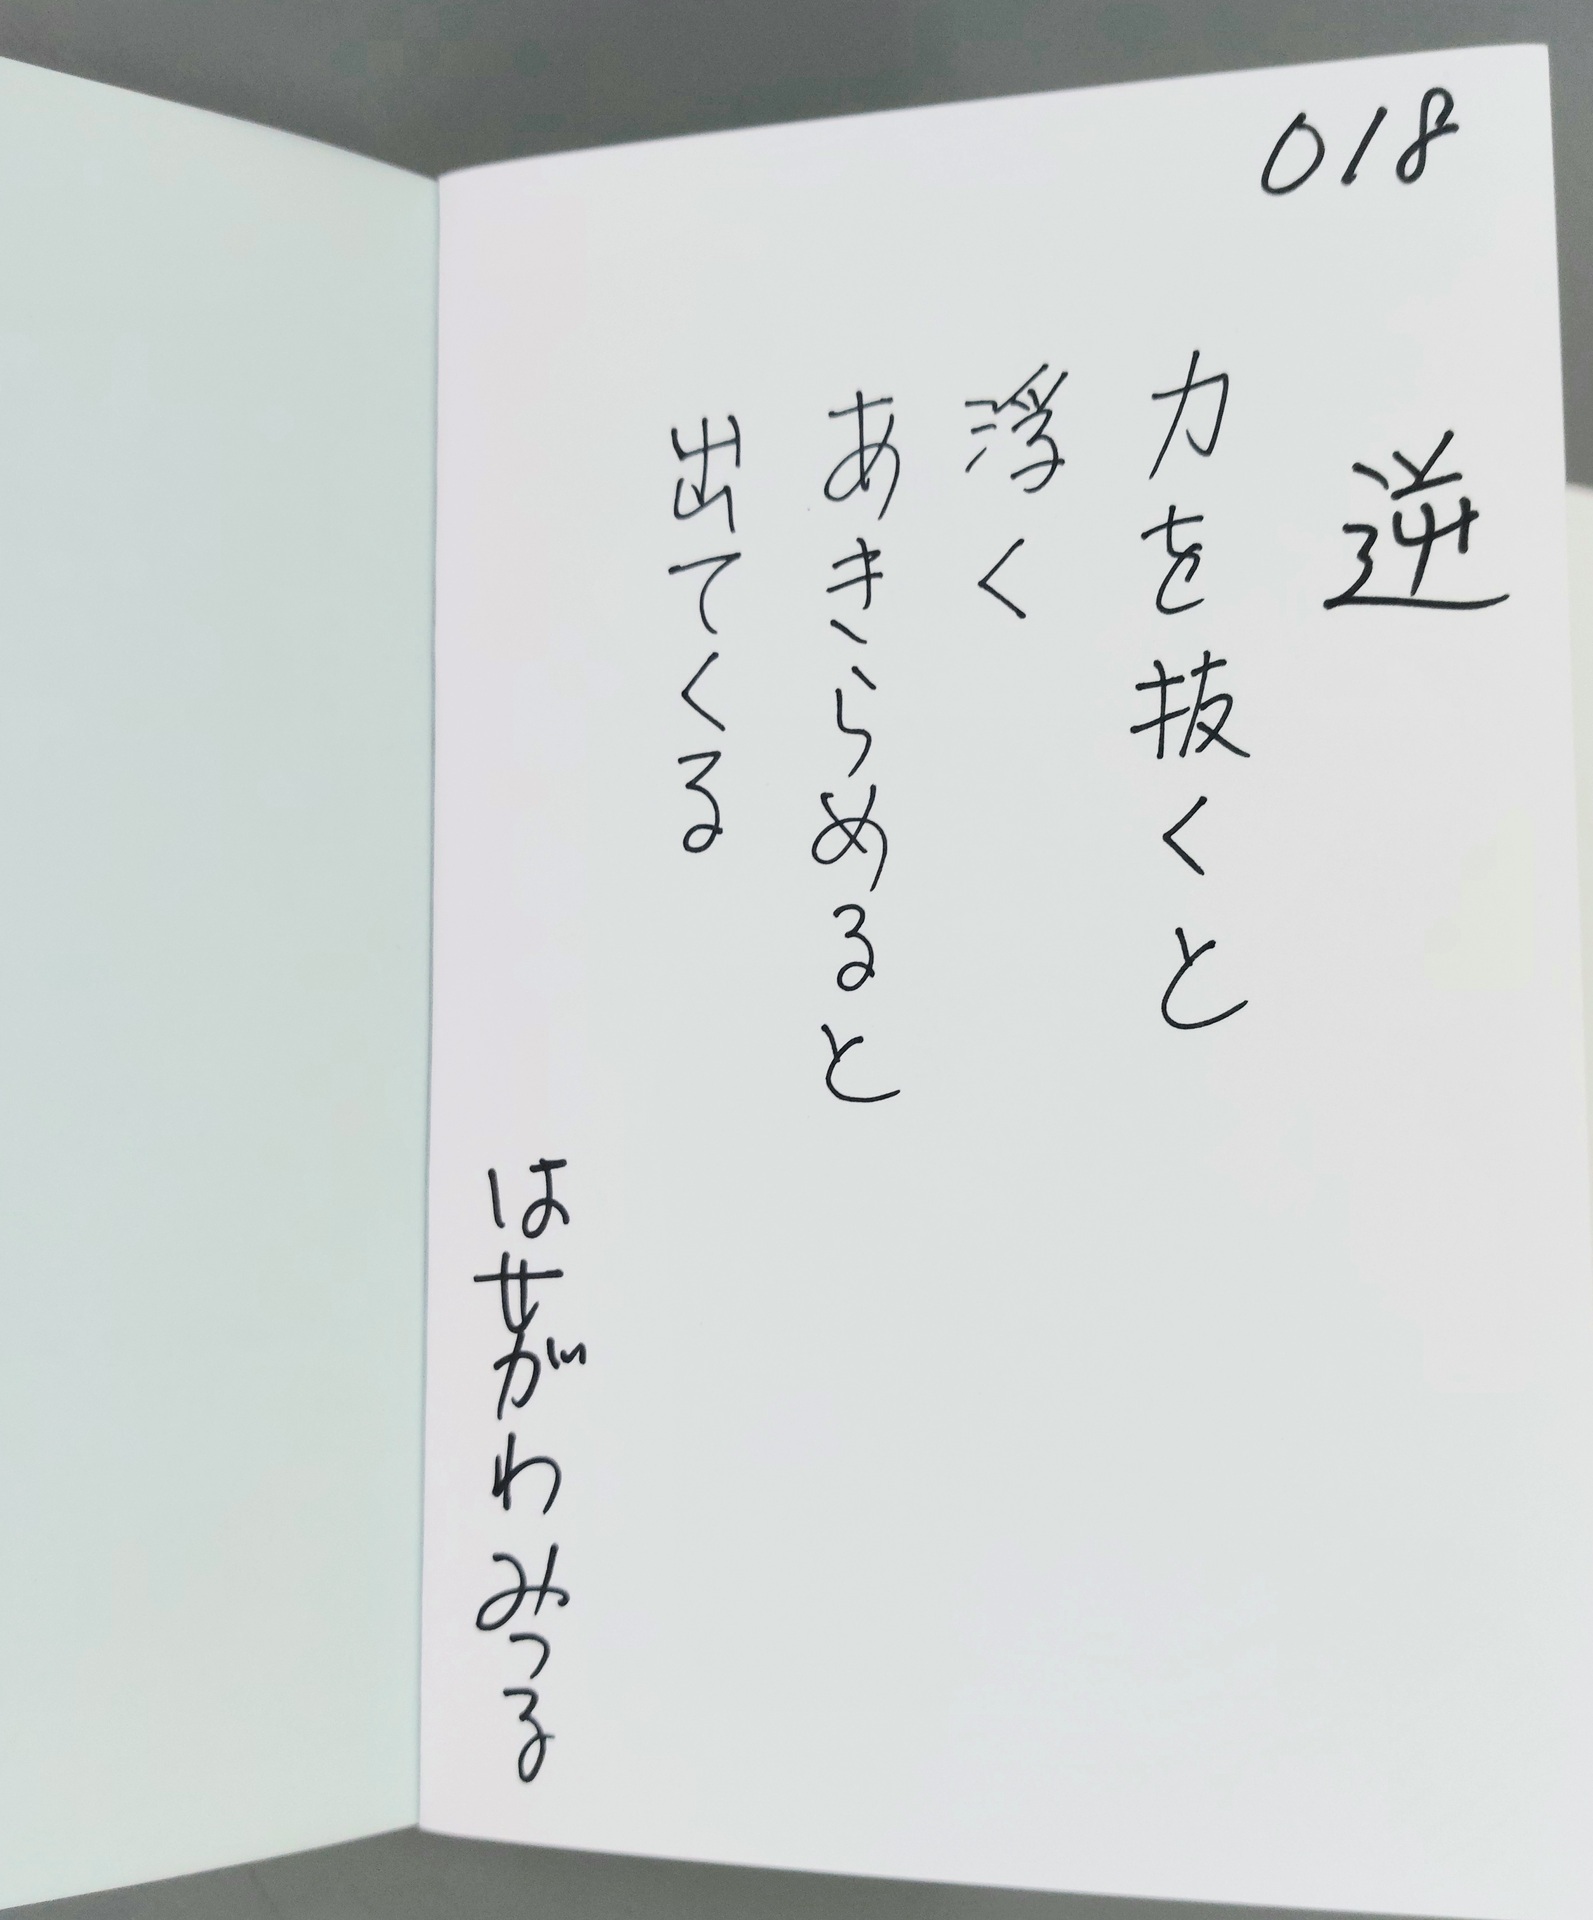 018
逆
力を抜くと
浮く
あきらめると
出てくる
はせがわみつる